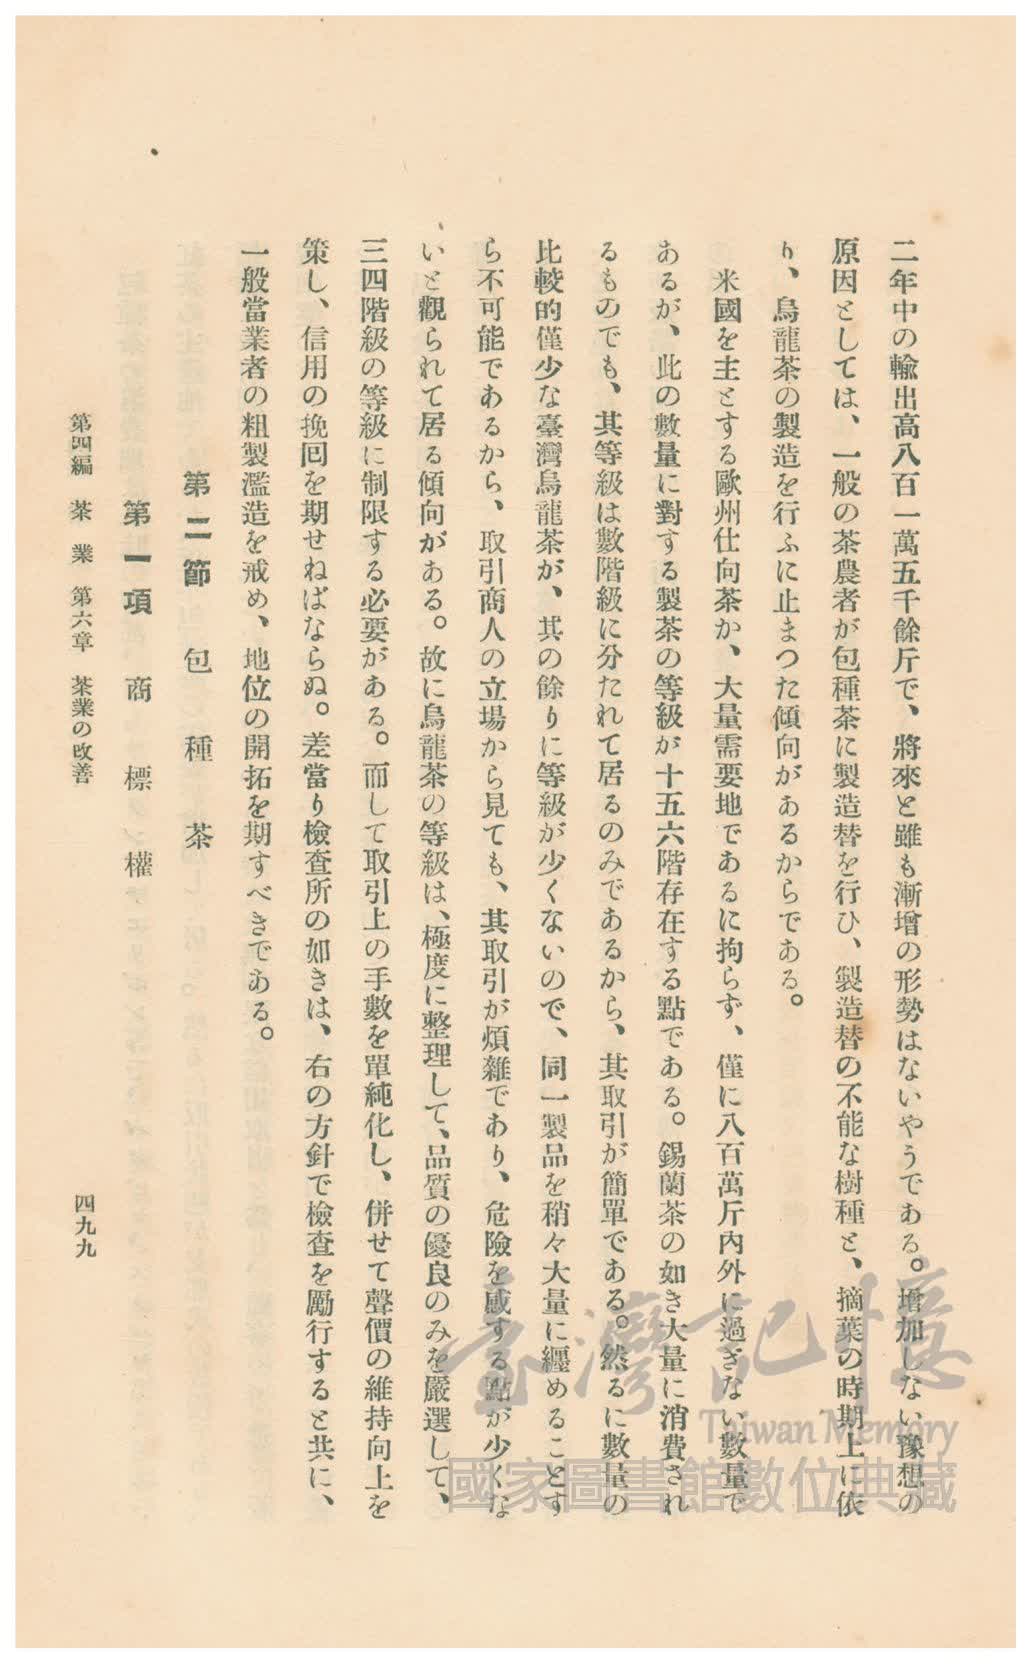 二年中の輸出高八百一萬五千餘斤で、將來と雖も漸增の形勢はないやうである。增加しない豫想の
原因としては、一般の茶農者が包種茶に製造替を行ひ、製造替の不能な樹種と、摘葉の時期上に依
り、烏龍茶の製造を行ふに止まつた傾向があるからである。
米國を主とする歐州仕向茶か、大量需要地であるに拘らず、僅に八百萬斤內外に過ぎない數量で
あるが、此の數量に對する製茶の等級が十五六階存在する點である。錫蘭茶の如き大量に消費され
るものでも、其等級は數階級に分たれて居るのみであるから、其取引が簡單である。然るに數量の
比較的僅少な臺灣烏龍茶が、其の餘りに等級が少くないので、同一製品を稍々大量に纏めることす
ら不可能であるから、取引商人の立場から見ても、其取引が煩雜であり、危險を感する點が少くな
いと觀られて居る傾向がある。故に烏龍茶の等級は、極度に整理して、品質の優良のみを嚴選して、
三四階級の等級に制限する必要がある。而して取引上の手數を單純化し、併せて聲價の維持向上を
策し、信用の挽回を期せねばならぬ。差當り檢查所の如きは、右の方針で檢查を勵行すると共に、
一般當業者の粗製濫造を戒め、地位の開拓を期すべきである。
第二節 包種茶
第一項 商標權
第四編 茶業 第六章 茶業の改善
四九九
臺灣記憶
Taiwan Memory
國家圖書館數位典藏